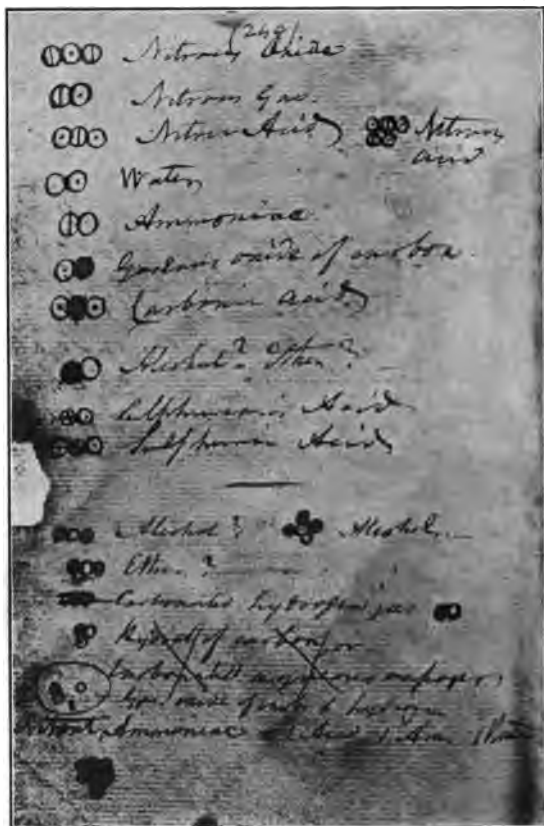 (248)
Nitrous Oxide
Nitrous Gas.
Nitric Acid Nitrous
acid
Water
Ammoniac
Gaseous oxide of carbon.
Carbonic acid
Alcohol? Ether?
Sulphureous Acid
Sulphuric Acid
Alcohol? or Alcohol
Ether?
Carbonated hydrogen gas
Hydrot of carbon or
oxide of &
Ammoniac